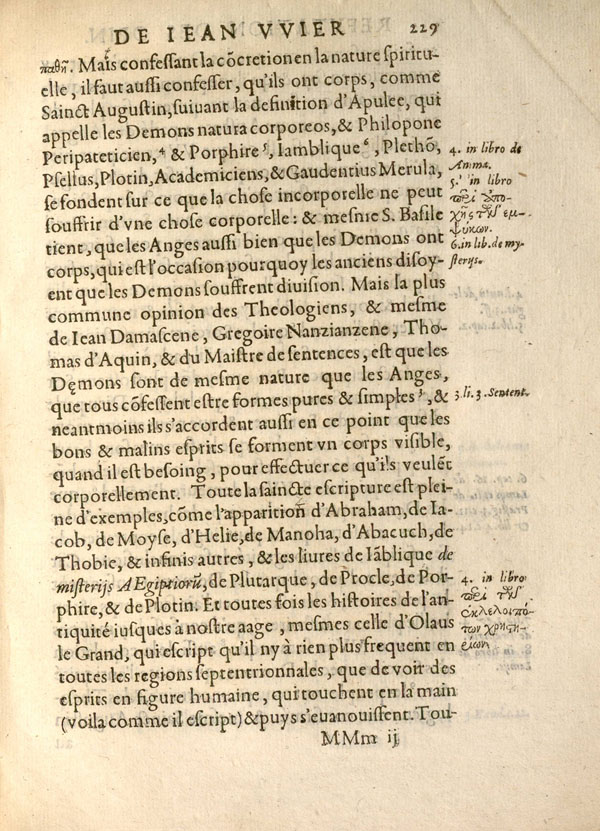 DE IEAN VVIER 229
παθῆ. Mais confessant la cõcretion en la nature spiritu-
elle, il faut aussi confesser, qu'ils ont corps, comme
Sainct Augustin, suiuant la definition d'Apulee, qui
appelle les Demons natura corporeos, & Philopone
Peripateticien,⁴ & Porphire⁵, Iamblique⁶, Plethõ,
Psellus, Plotin, Academiciens, & Gaudentius Merula,
se fondent sur ce que la chose incorporelle ne peut
souffrir d'vne chose corporelle: & mesme S. Basile
tient, que les Anges aussi bien que les Demons ont
corps, qui est l'occasion pourquoy les anciens disoy-
ent que les Demons souffrent diuision. Mais la plus
commune opinion des Theologiens, & mesme
de Iean Damascene, Gregoire Nanzianzene, Tho-
mas d'Aquin, & du Maistre de sentences, est que les
Dęmons sont de mesme nature que les Anges,
que tous cõfessent estre formes pures & simples³, &
neantmoins ils s'accordent aussi en ce point que les
bons & malins esprits se forment vn corps visible,
quand il est besoing, pour effectuer ce qu'ils veulẽt
corporellement. Toute la saincte escripture est plei-
ne d'exemples, cõme l'apparitiõ d'Abraham, de Ia-
cob, de Moyse, d'Helie, de Manoha, d'Abacuch, de
Thobie, & infinis autres, & les liures de Iãblique de
misterijs AEgiptiorũ, de Plutarque, de Procle, de Por-
phire, & de Plotin. Et toutes fois les histoires de l'an-
tiquité iusques à nostre aage, mesmes celle d'Olaus
le Grand, qui escript qu'il ny à rien plus frequent en
toutes les regions septentrionnales, que de voir des
esprits en figure humaine, qui touchent en la main
(voila comme il escript) & puys s'euanouissent. Tou-
MMm ij
4. in libro de
Anima.
5. in libro
περὶ ἀπο-
χῆς τῶν ἐμ-
ψύχων.
6. in lib. de my-
sterijs.
3. li. 3. Sentent.
4. in libro
περὶ τῆς
των χρηςη-
ρίων